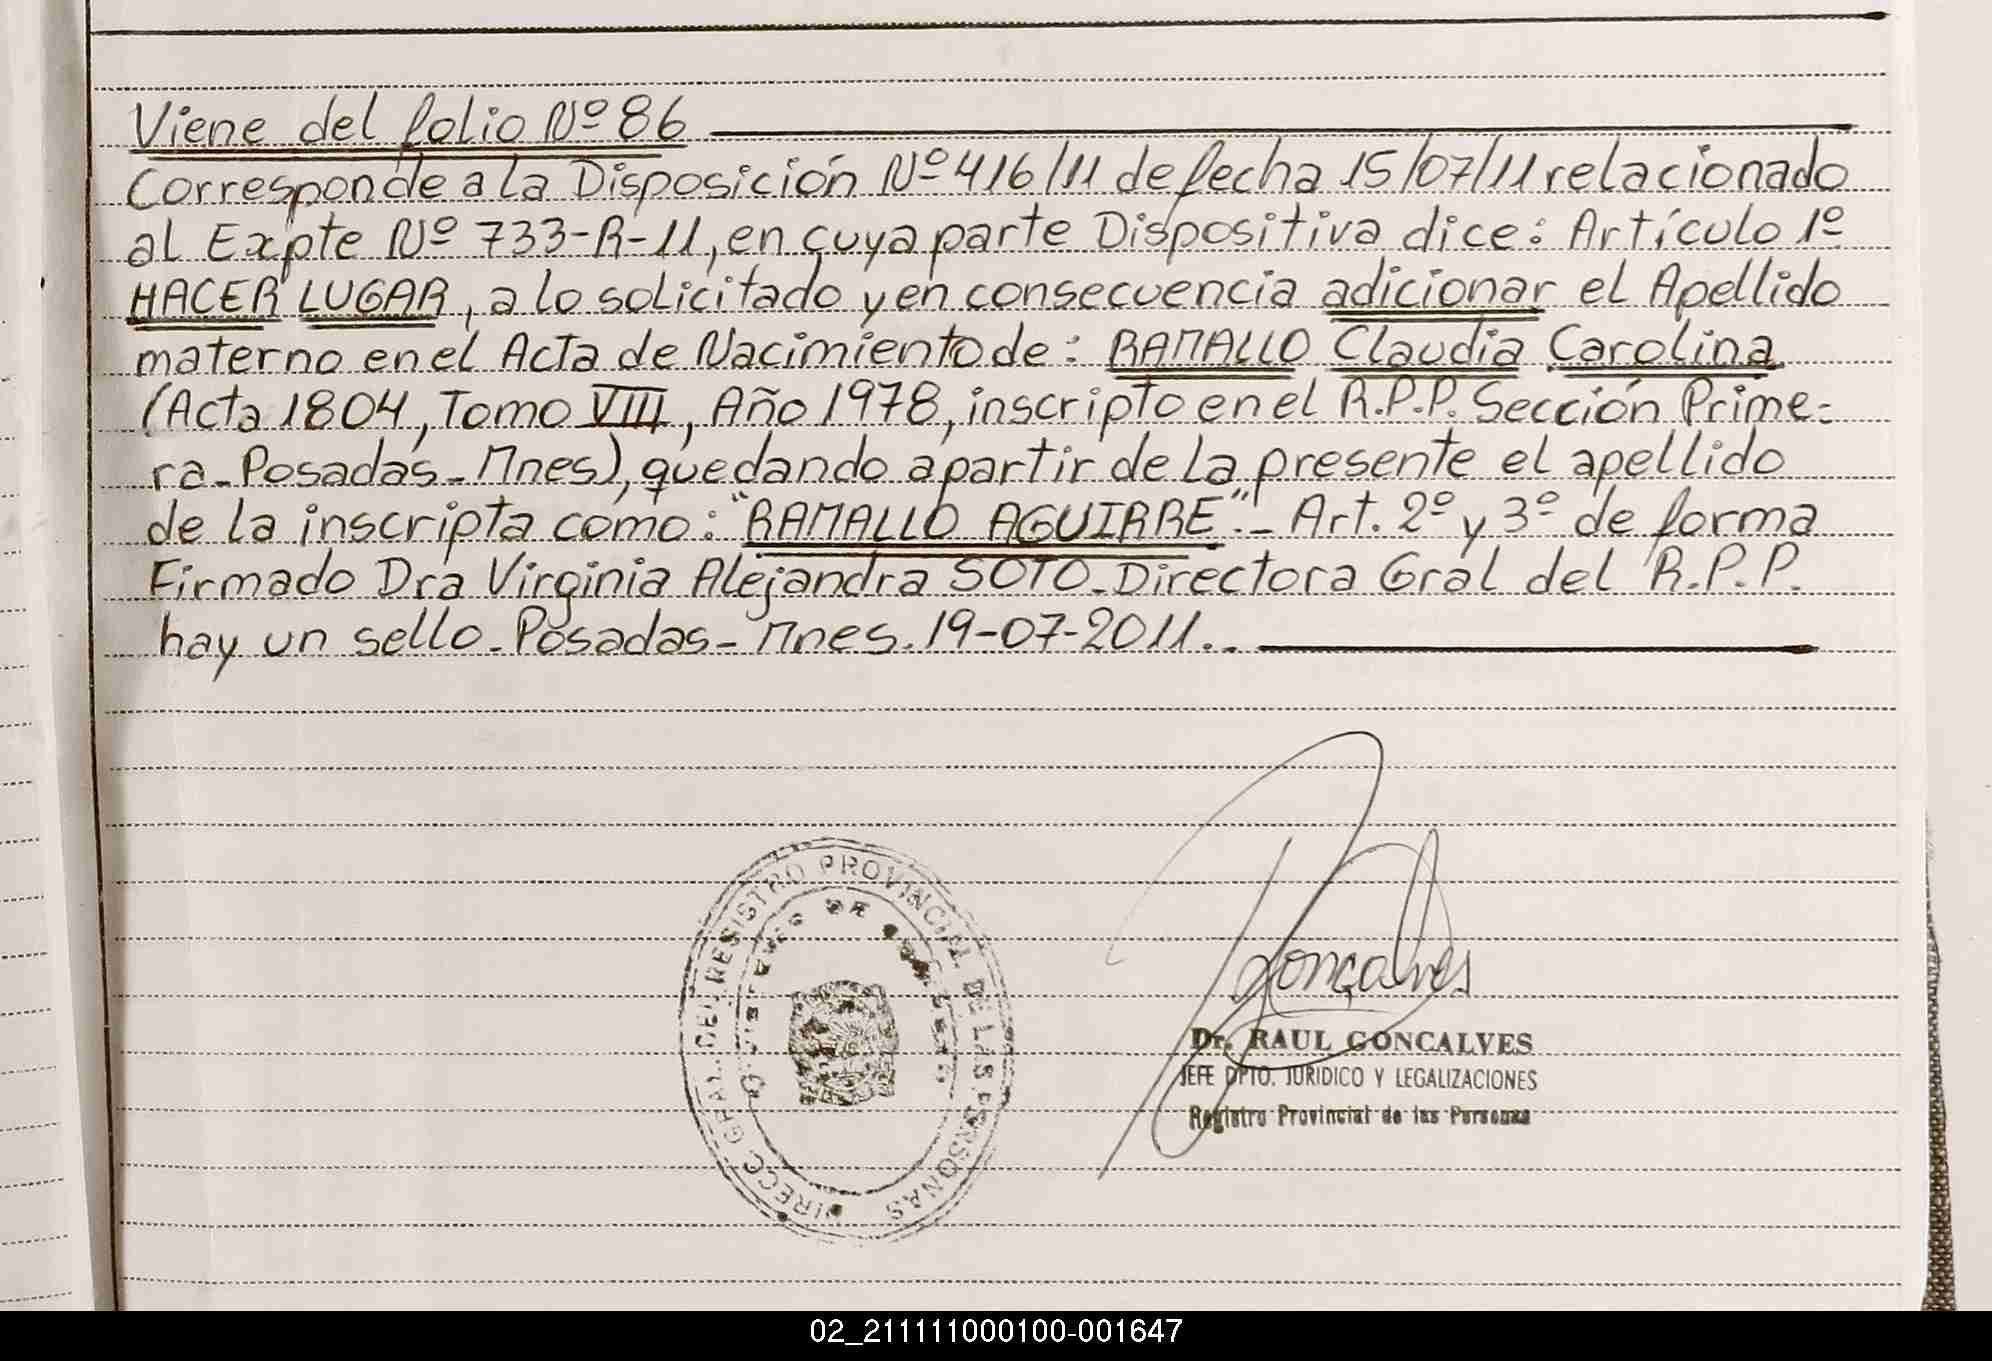 Viene del folio Nº 86
Corresponde a la Disposición Nº 416/11 de fecha 15/07/11 relacionado
al Expte Nº 733-R-11, en cuya parte Dispositiva dice: Artículo 1º
HACER LUGAR, a lo solicitado y en consecuencia adicionar el Apellido
materno en el Acta de Nacimiento de: RAMALLO Claudia Carolina
(Acta 1804, Tomo VIII, Año 1978, inscripto en el R.P.P. Sección Prime-
ra-Posadas-Mnes), quedando a partir de la presente el apellido
de la inscripta como: "RAMALLO AGUIRRE".- Art. 2º y 3º de forma
Firmado Dra Virginia Alejandra SOTO-Directora Gral del R.P.P.
hay un sello-Posadas-Mnes. 19-07-2011..
DIRECC. GRAL. DEL REGISTRO PROVINCIAL DE LAS PERSONAS
Goncalves
Dr. RAUL GONCALVES
JEFE DPTO. JURIDICO Y LEGALIZACIONES
Registro Provincial de las Personas
02_211111000100-001647